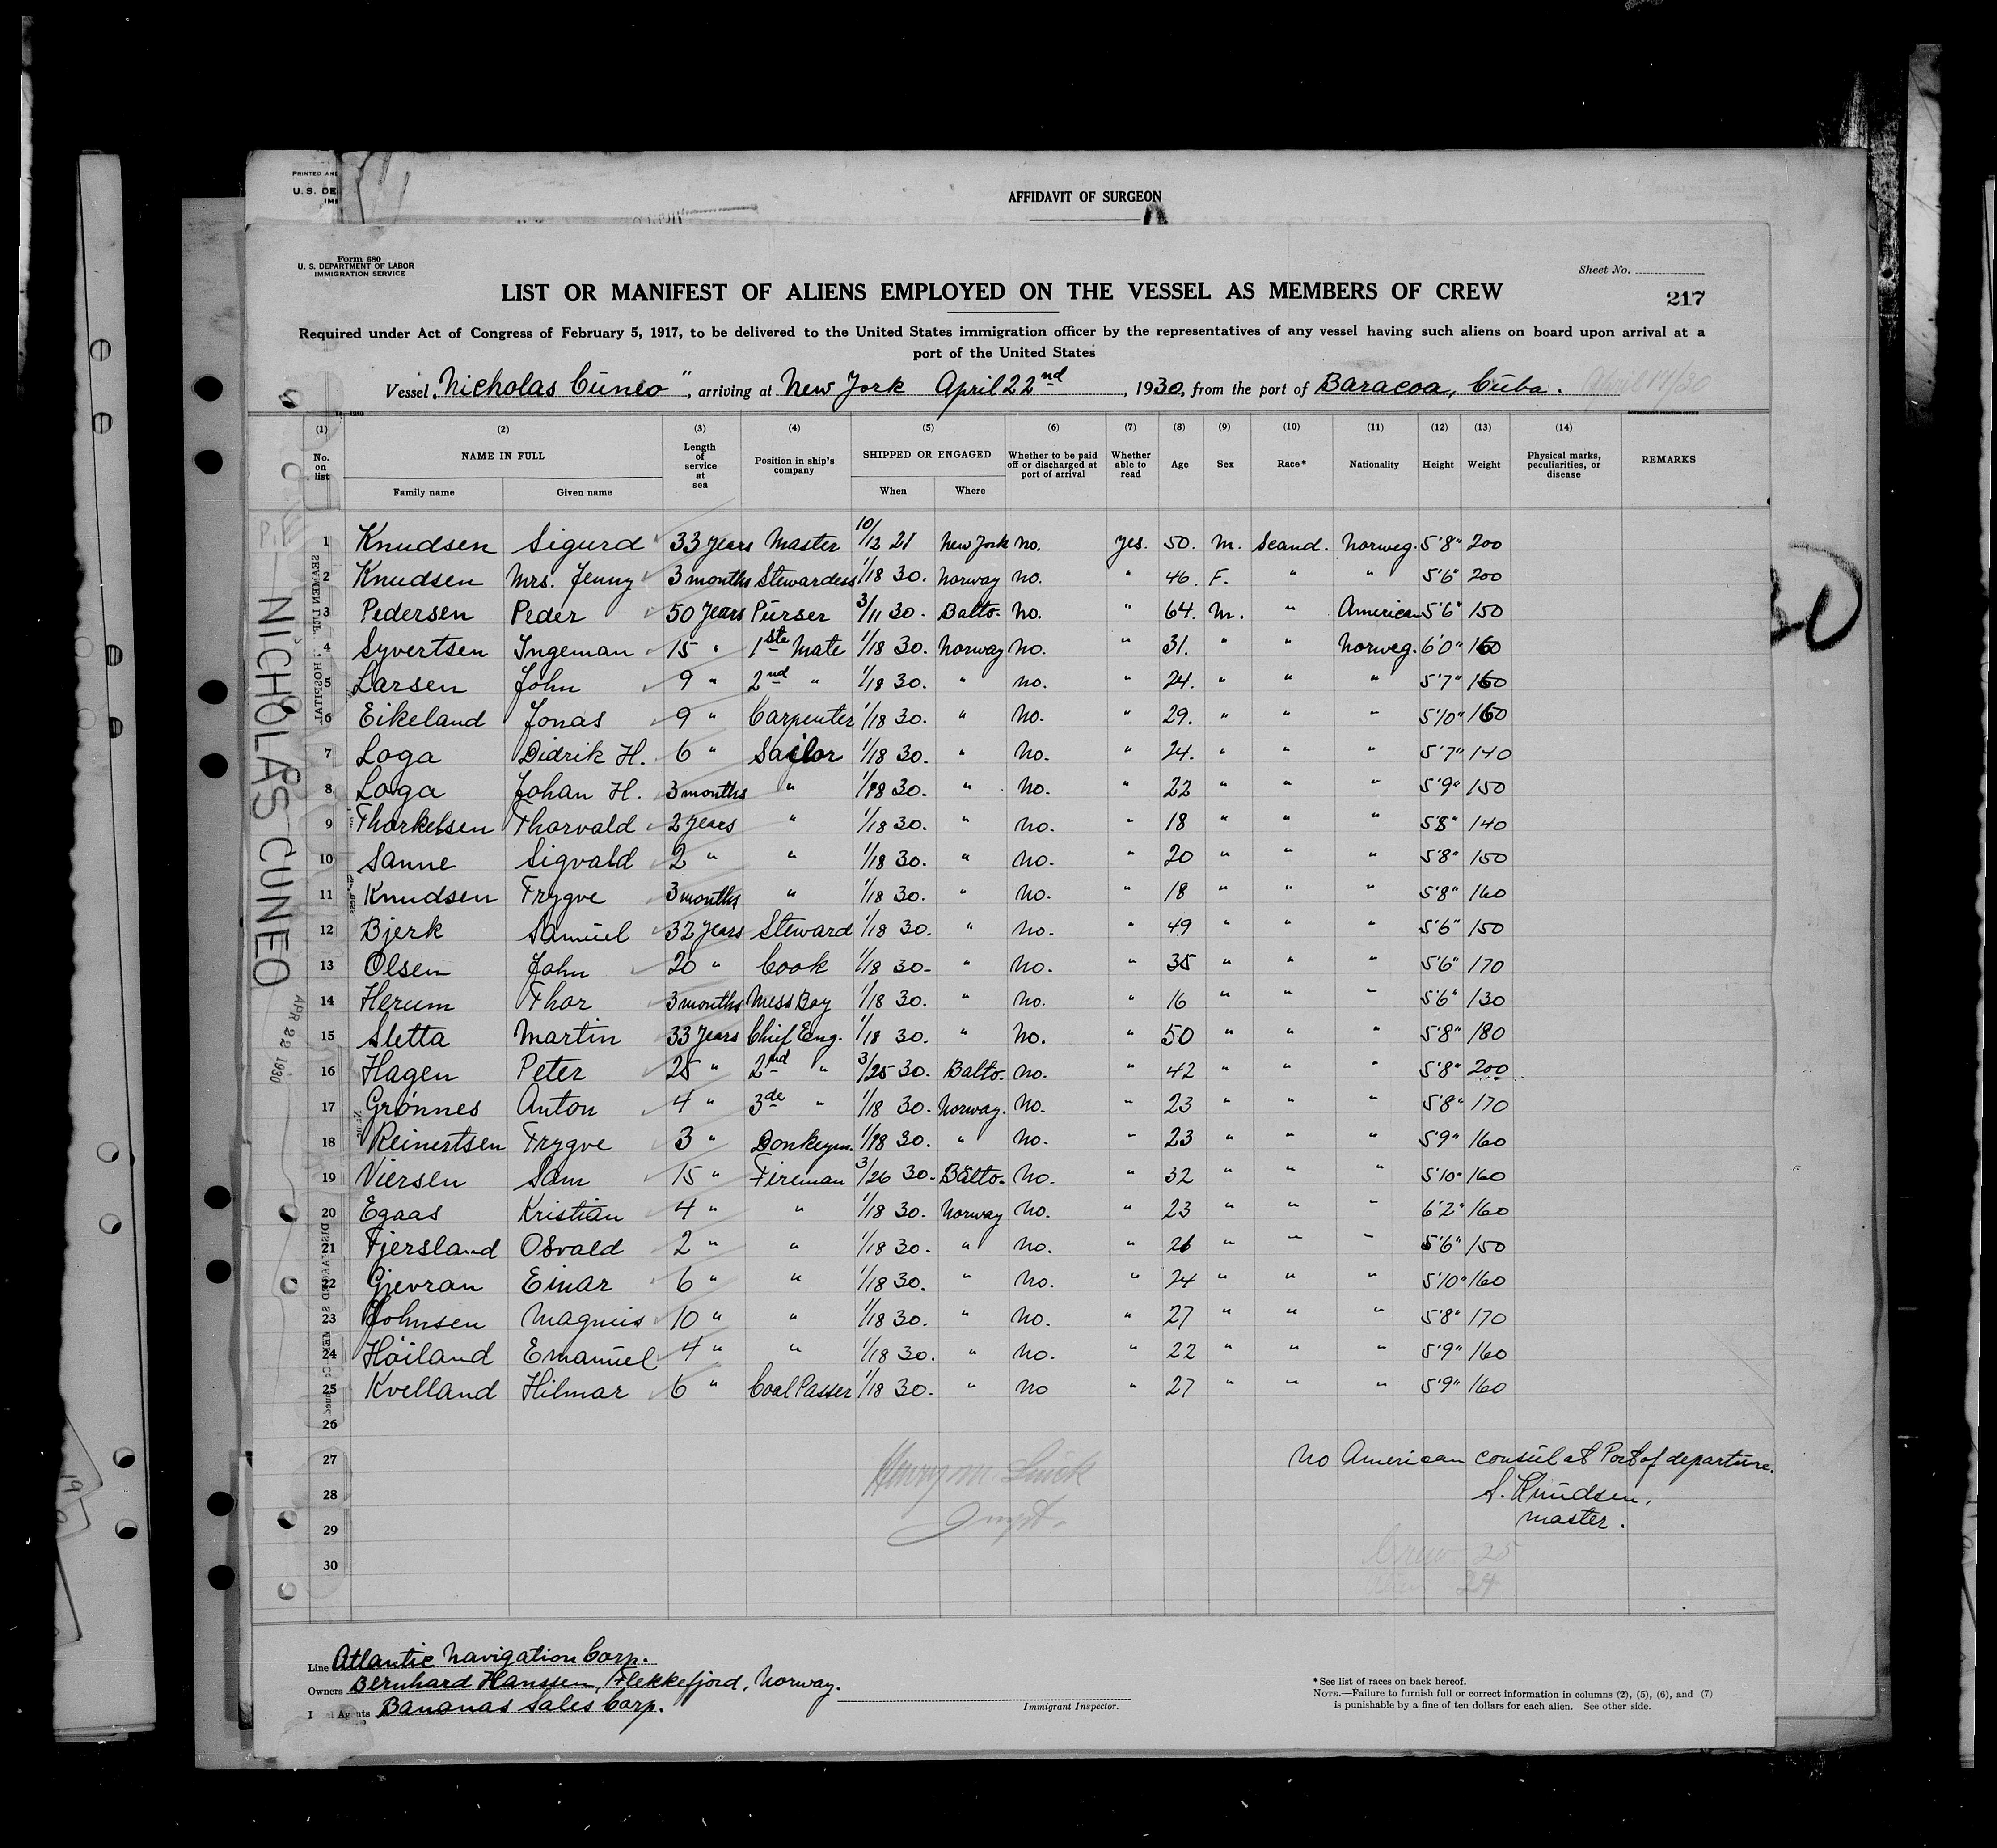 PRINTED AN
U. S. DE
IM
AFFIDAVIT OF SURGEON
Form 680
U. S. DEPARTMENT OF LABOR
IMMIGRATION SERVICE
Sheet No.
LIST OR MANIFEST OF ALIENS EMPLOYED ON THE VESSEL AS MEMBERS OF CREW
217
Required under Act of Congress of February 5, 1917, to be delivered to the United States immigration officer by the representatives of any vessel having such aliens on board upon arrival at a
port of the United States
Vessel "Nicholas Cuneo", arriving at New York April 22nd, 1930, from the port of Baracoa, Cuba. April 17/30
(1) (2) (3) (4) (5) (6) (7) (8) (9) (10) (11) (12) (13) (14)
No. on list NAME IN FULL Family name Given name Length of service at sea Position in ship's company SHIPPED OR ENGAGED When Where Whether to be paid off or discharged at port of arrival Whether able to read Age Sex Race* Nationality Height Weight Physical marks, peculiarities, or disease REMARKS
1 Knudsen Sigurd 33 years Master 10/12 21 New York no. yes. 50. M. Scand. Norweg. 5'8" 200
2 Knudsen Mrs. Jenny 3 months Stewardess 1/18 30. Norway no. " 46. F. " " 5'6" 200
3 Pedersen Peder 50 years Purser 3/11 30. Balto. no. " 64. M. " American 5'6" 150
4 Syvertsen Ingeman 15 " 1ste Mate 1/18 30. Norway no. " 31. " " Norweg. 6'0" 160
5 Larsen John 9 " 2nd " 1/18 30. " no. " 24. " " " 5'7" 160
6 Eikeland Jonas 9 " Carpenter 1/18 30. " no. " 29. " " " 5'10" 160
7 Loga Didrik H. 6 " Sailor 1/18 30. " no. " 24. " " " 5'7" 140
8 Loga Johan H. 3 months " 1/18 30. " no. " 22 " " " 5'9" 150
9 Thorkelsen Thorvald 2 years " 1/18 30. " no. " 18 " " " 5'8" 140
10 Sanne Sigvald 2 " " 1/18 30. " no. " 20 " " " 5'8" 150
11 Knudsen Trygve 3 months " 1/18 30. " no. " 18 " " " 5'8" 160
12 Bjerk Samuel 32 years Steward 1/18 30. " no. " 49 " " " 5'6" 150
13 Olsen John 20 " Cook 1/18 30- " no. " 35 " " " 5'6" 170
14 Herum Thor 3 months Mess Boy 1/18 30. " no. " 16 " " " 5'6" 130
15 Sletta Martin 33 years Chief Eng. 1/18 30. " no. " 50 " " " 5'8" 180
16 Hagen Peter 25 " 2nd " 3/25 30. Balto. no. " 42 " " " 5'8" 200
17 Grønnes Anton 4 " 3de " 1/18 30. Norway. no. " 23 " " " 5'8" 170
18 Reinertsen Trygve 3 " Donkeym. 1/18 30. " no. " 23 " " " 5'9" 160
19 Viersen Sam 15 " Fireman 3/26 30. Balto. no. " 32 " " " 5'10" 160
20 Egaas Kristian 4 " " 1/18 30. Norway no. " 23 " " " 6'2" 160
21 Fjersland Osvald 2 " " 1/18 30. " no. " 26 " " " 5'6" 150
22 Gjevran Einar 6 " " 1/18 30. " no. " 24 " " " 5'10" 160
23 Johnsen Magnus 10 " " 1/18 30. " no. " 27 " " " 5'8" 170
24 Höiland Emanuel 4 " " 1/18 30. " no. " 22 " " " 5'9" 160
25 Kvelland Hilmar 6 " Coal Passer 1/18 30. " no " 27 " " " 5'9" 160
26
27 No American consul at Port of departure.
28 S. Knudsen,
29 Master.
30
Crew 25
24
NICHOLAS CUNEO
APR 22 1930
Line Atlantic Navigation Corp.
Owners Bernhard Hanssen, Flekkefjord, Norway.
Agents Bananas Sales Corp.
Immigrant Inspector.
*See list of races on back hereof.
NOTE.—Failure to furnish full or correct information in columns (2), (5), (6), and (7)
is punishable by a fine of ten dollars for each alien. See other side.